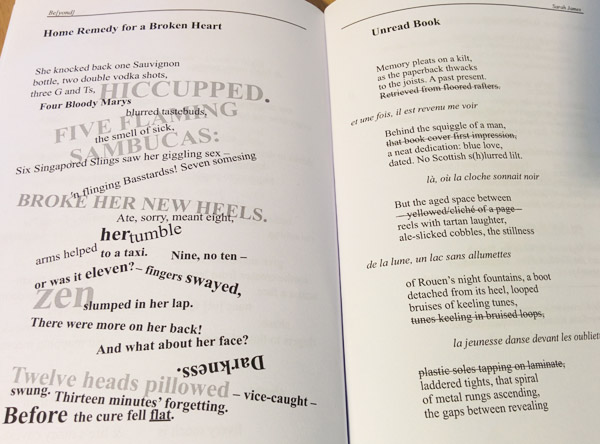 Be[yond]
Home Remedy for a Broken Heart
She knocked back one Sauvignon
bottle, two double vodka shots,
three G and Ts, HICCUPPED.
Four Bloody Marys
blurred tastebuds,
FIVE FLAMING
the smell of sick,
SAMBUCAS:
Six Singapored Slings saw her giggling sex –
'n flinging Basstardss! Seven somesing
BROKE HER NEW HEELS.
Ate, sorry, meant eight,
her tumble
arms helped to a taxi. Nine, no ten –
or was it eleven? – fingers swayed,
zen slumped in her lap.
There were more on her back!
And what about her face?
Darkness.
Twelve heads pillowed – vice-caught –
swung. Thirteen minutes' forgetting.
Before the cure fell flat.
Sarah James
Unread Book
Memory pleats on a kilt,
as the paperback thwacks
to the joists. A past present.
Retrieved from floored rafters.
et une fois, il est revenu me voir
Behind the squiggle of a man,
that book cover first impression,
a neat dedication: blue love,
dated. No Scottish s(h)lurred lilt.
là, où la cloche sonnait noir
But the aged space between
– yellowed/cliché of a page –
reels with tartan laughter,
ale-slicked cobbles, the stillness
de la lune, un lac sans allumettes
of Rouen's night fountains, a boot
detached from its heel, looped
bruises of keeling tunes,
tunes keeling in bruised loops,
la jeunesse danse devant les
plastic soles tapping on laminate,
laddered tights, that spiral
of metal rungs ascending,
the gaps between revealing